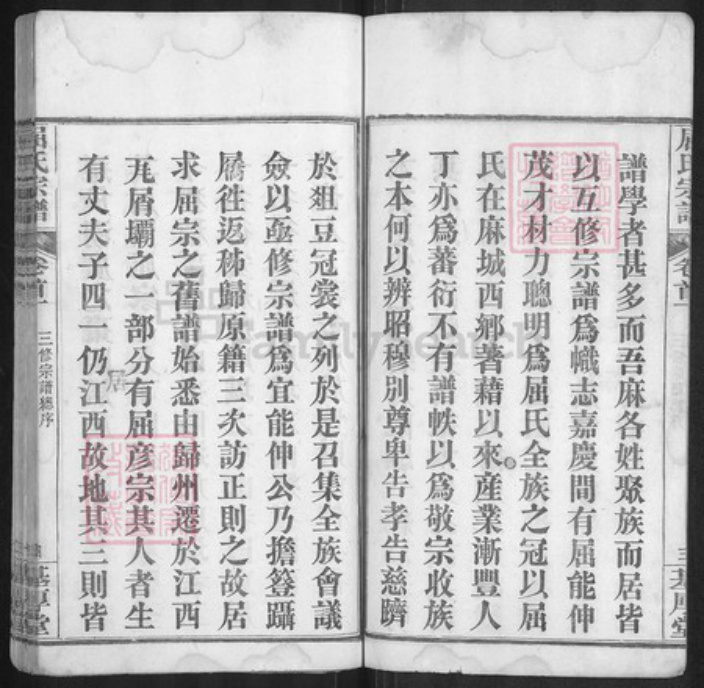 譜學者甚多而吾麻各姓聚族而居皆
以互修宗譜爲幟志嘉慶間有屈能伸
茂才材力聰明爲屈氏全族之冠以屈
氏在麻城西鄉著藉以來產業漸豐人
丁亦爲蕃衍不有譜帙以爲敬宗收族
之本何以辨昭穆別尊卑告孝告慈躋
於俎豆冠裳之列於是召集全族會議
僉以亟修宗譜爲宜能伸公乃擔簦躡
屩徃返秭歸原籍三次訪正則之故居
求屈宗之舊譜始悉由歸州遷於江西
瓦屑壩之一部分有屈彥宗其人者生
有丈夫子四一仍江西故地其三則皆
屈氏宗譜
卷首一
三修宗譜總序
基厚堂